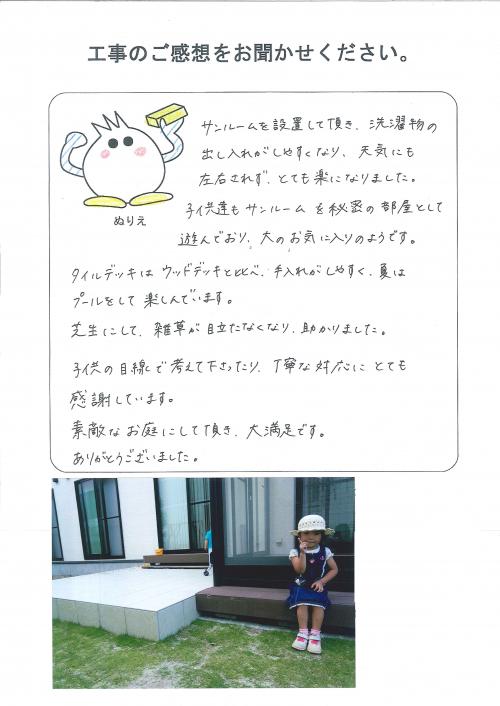 工事のご感想をお聞かせください。
サンルームを設置して頂き、洗濯物の
出し入れがしやすくなり、天気にも
左右されず、とても楽になりました。
ぬりえ
子供達もサンルームを秘密の部屋として
遊んでおり、大のお気に入りのようです。
タイルデッキはウッドデッキと比べ、手入れがしやすく、夏は
プールをして楽しんでいます。
芝生にして、雑草が目立たなくなり、助かりました。
子供の目線で考えて下さったり、丁寧な対応にとても
感謝しています。
素敵なお庭にして頂き、大満足です。
ありがとうございました。